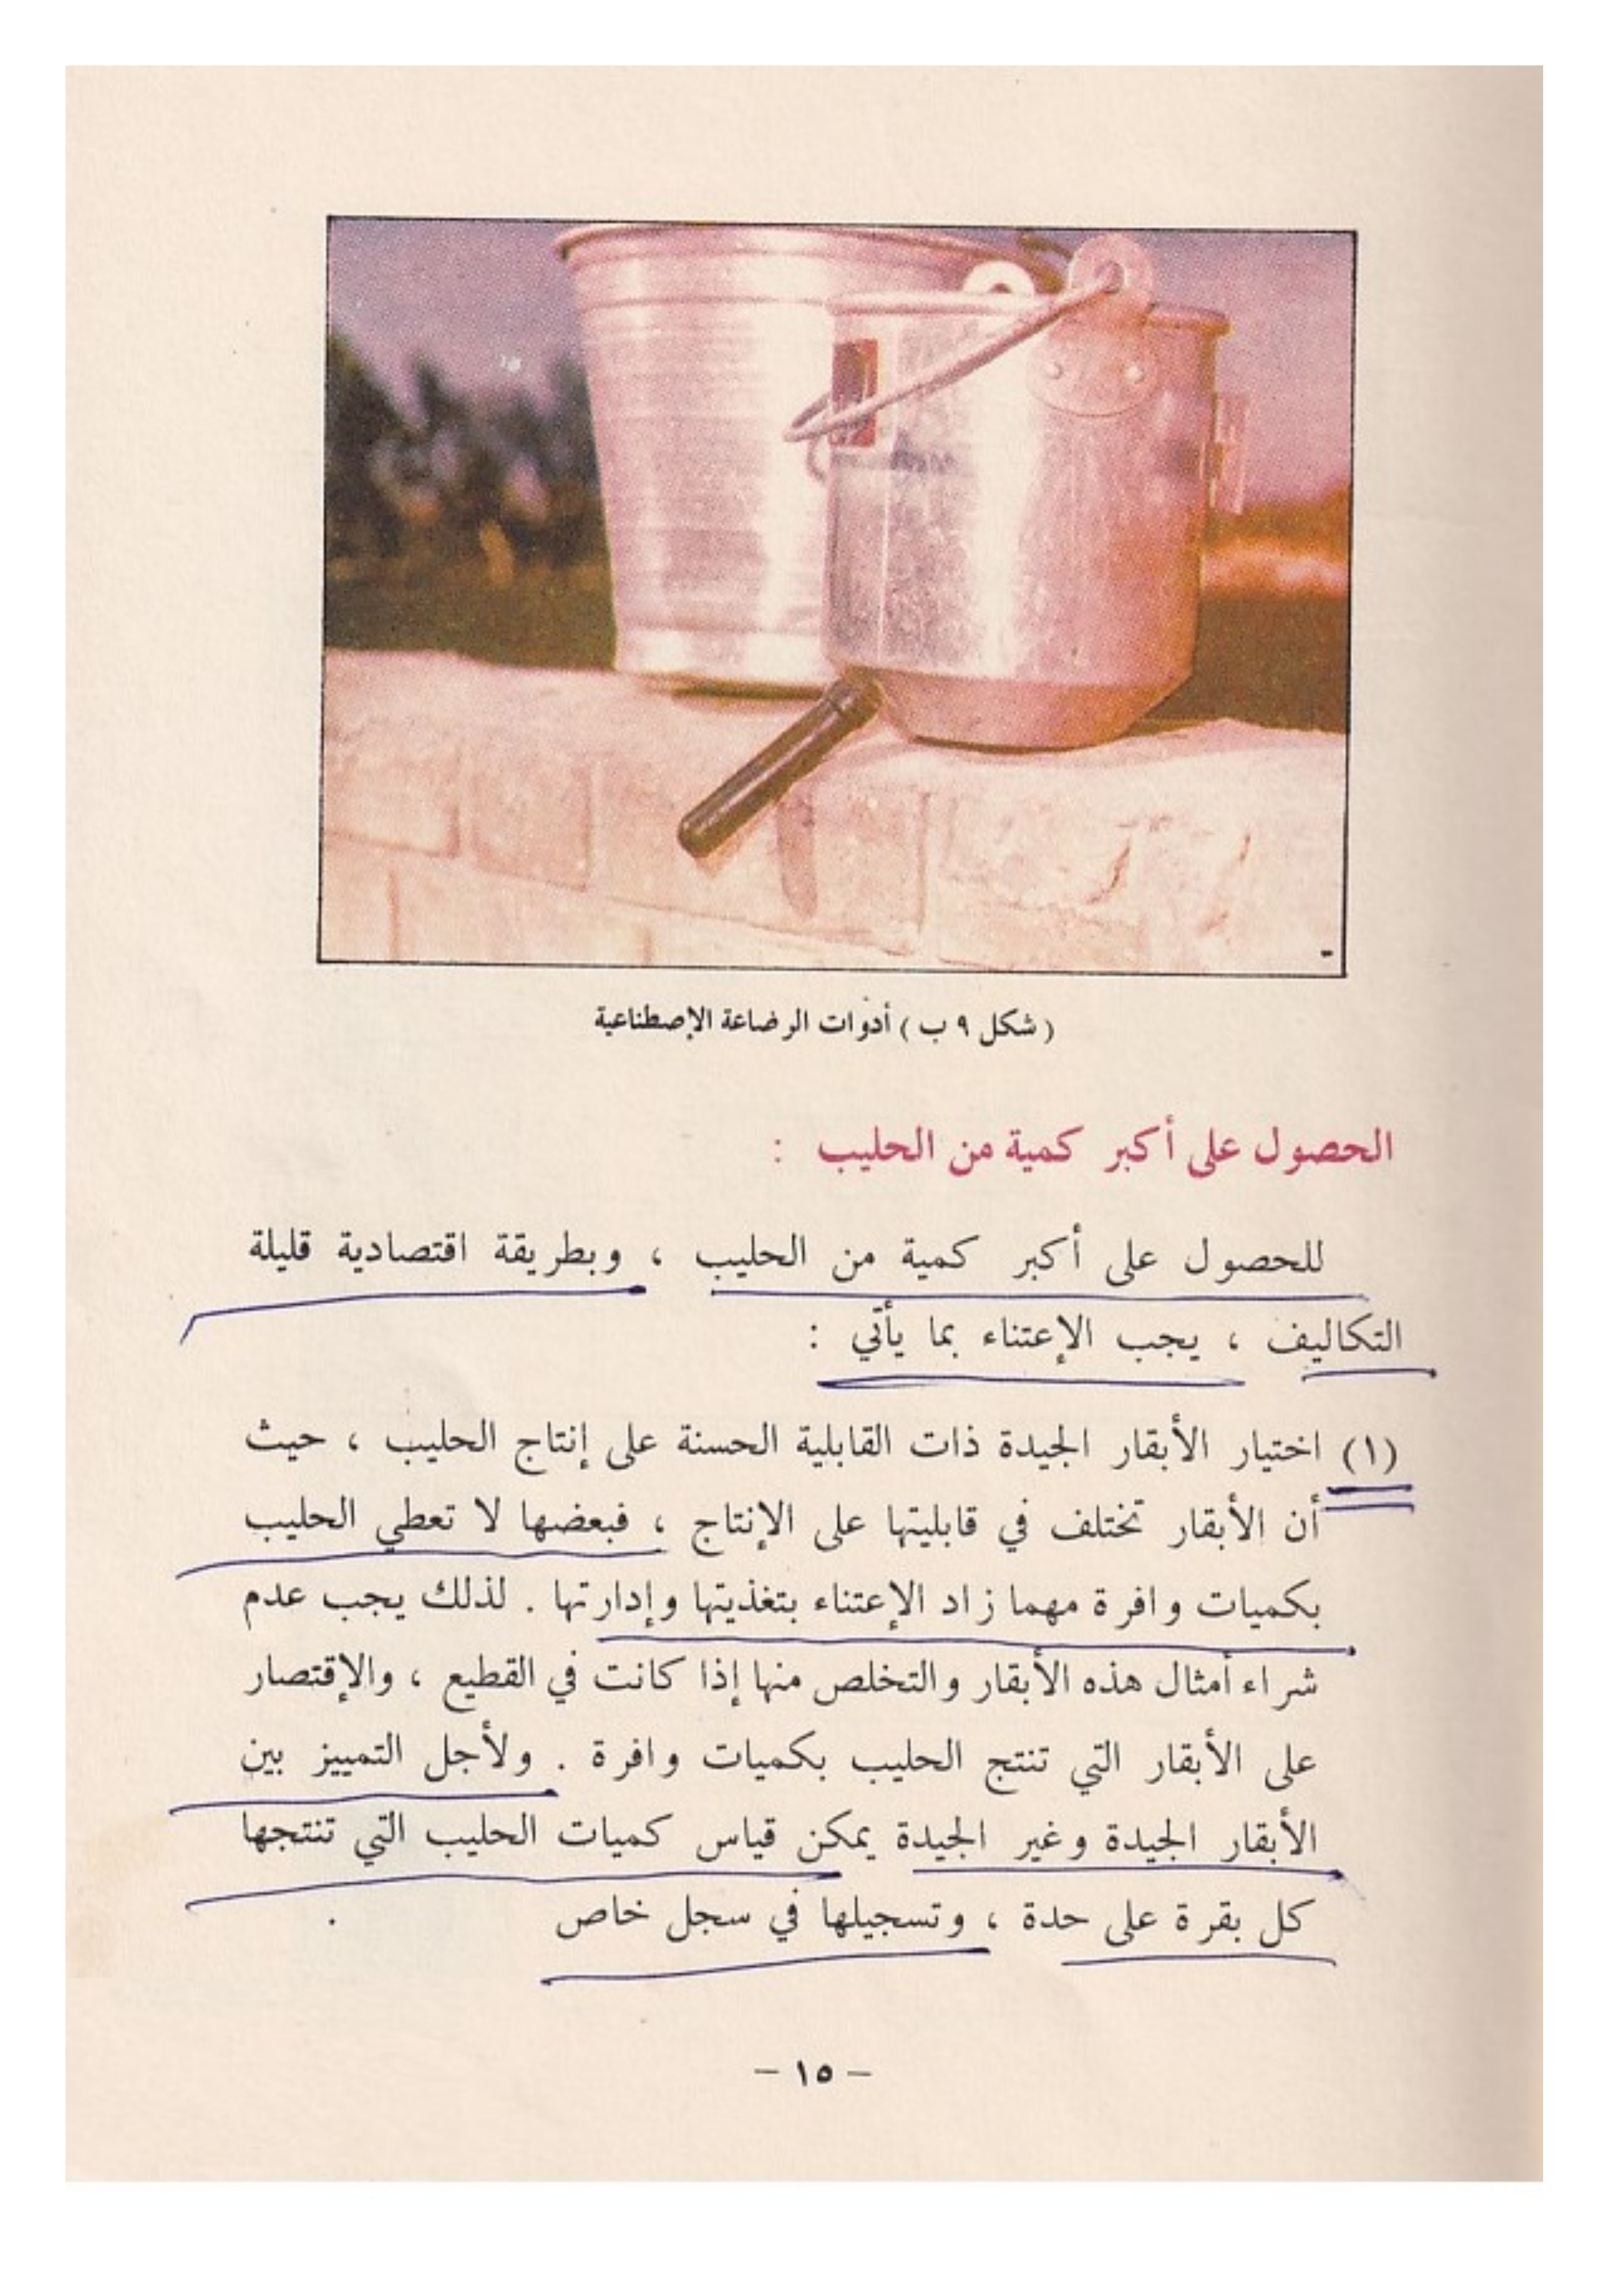 ( شكل ٩ ب ) أدوات الرضاعة الإصطناعية
الحصول على أكبر كمية من الحليب :
للحصول على أكبر كمية من الحليب ، وبطريقة اقتصادية قليلة
التكاليف ، يجب الإعتناء بما يأتي :
(١) اختيار الأبقار الجيدة ذات القابلية الحسنة على إنتاج الحليب ، حيث
أن الأبقار تختلف في قابليتها على الإنتاج ، فبعضها لا تعطي الحليب
بكميات وافرة مهما زاد الإعتناء بتغذيتها وإدارتها . لذلك يجب عدم
شراء أمثال هذه الأبقار والتخلص منها إذا كانت في القطيع ، والإقتصار
على الأبقار التي تنتج الحليب بكميات وافرة . ولأجل التمييز بين
الأبقار الجيدة وغير الجيدة يمكن قياس كميات الحليب التي تنتجها
كل بقرة على حدة ، وتسجيلها في سجل خاص .
– ١٥ –